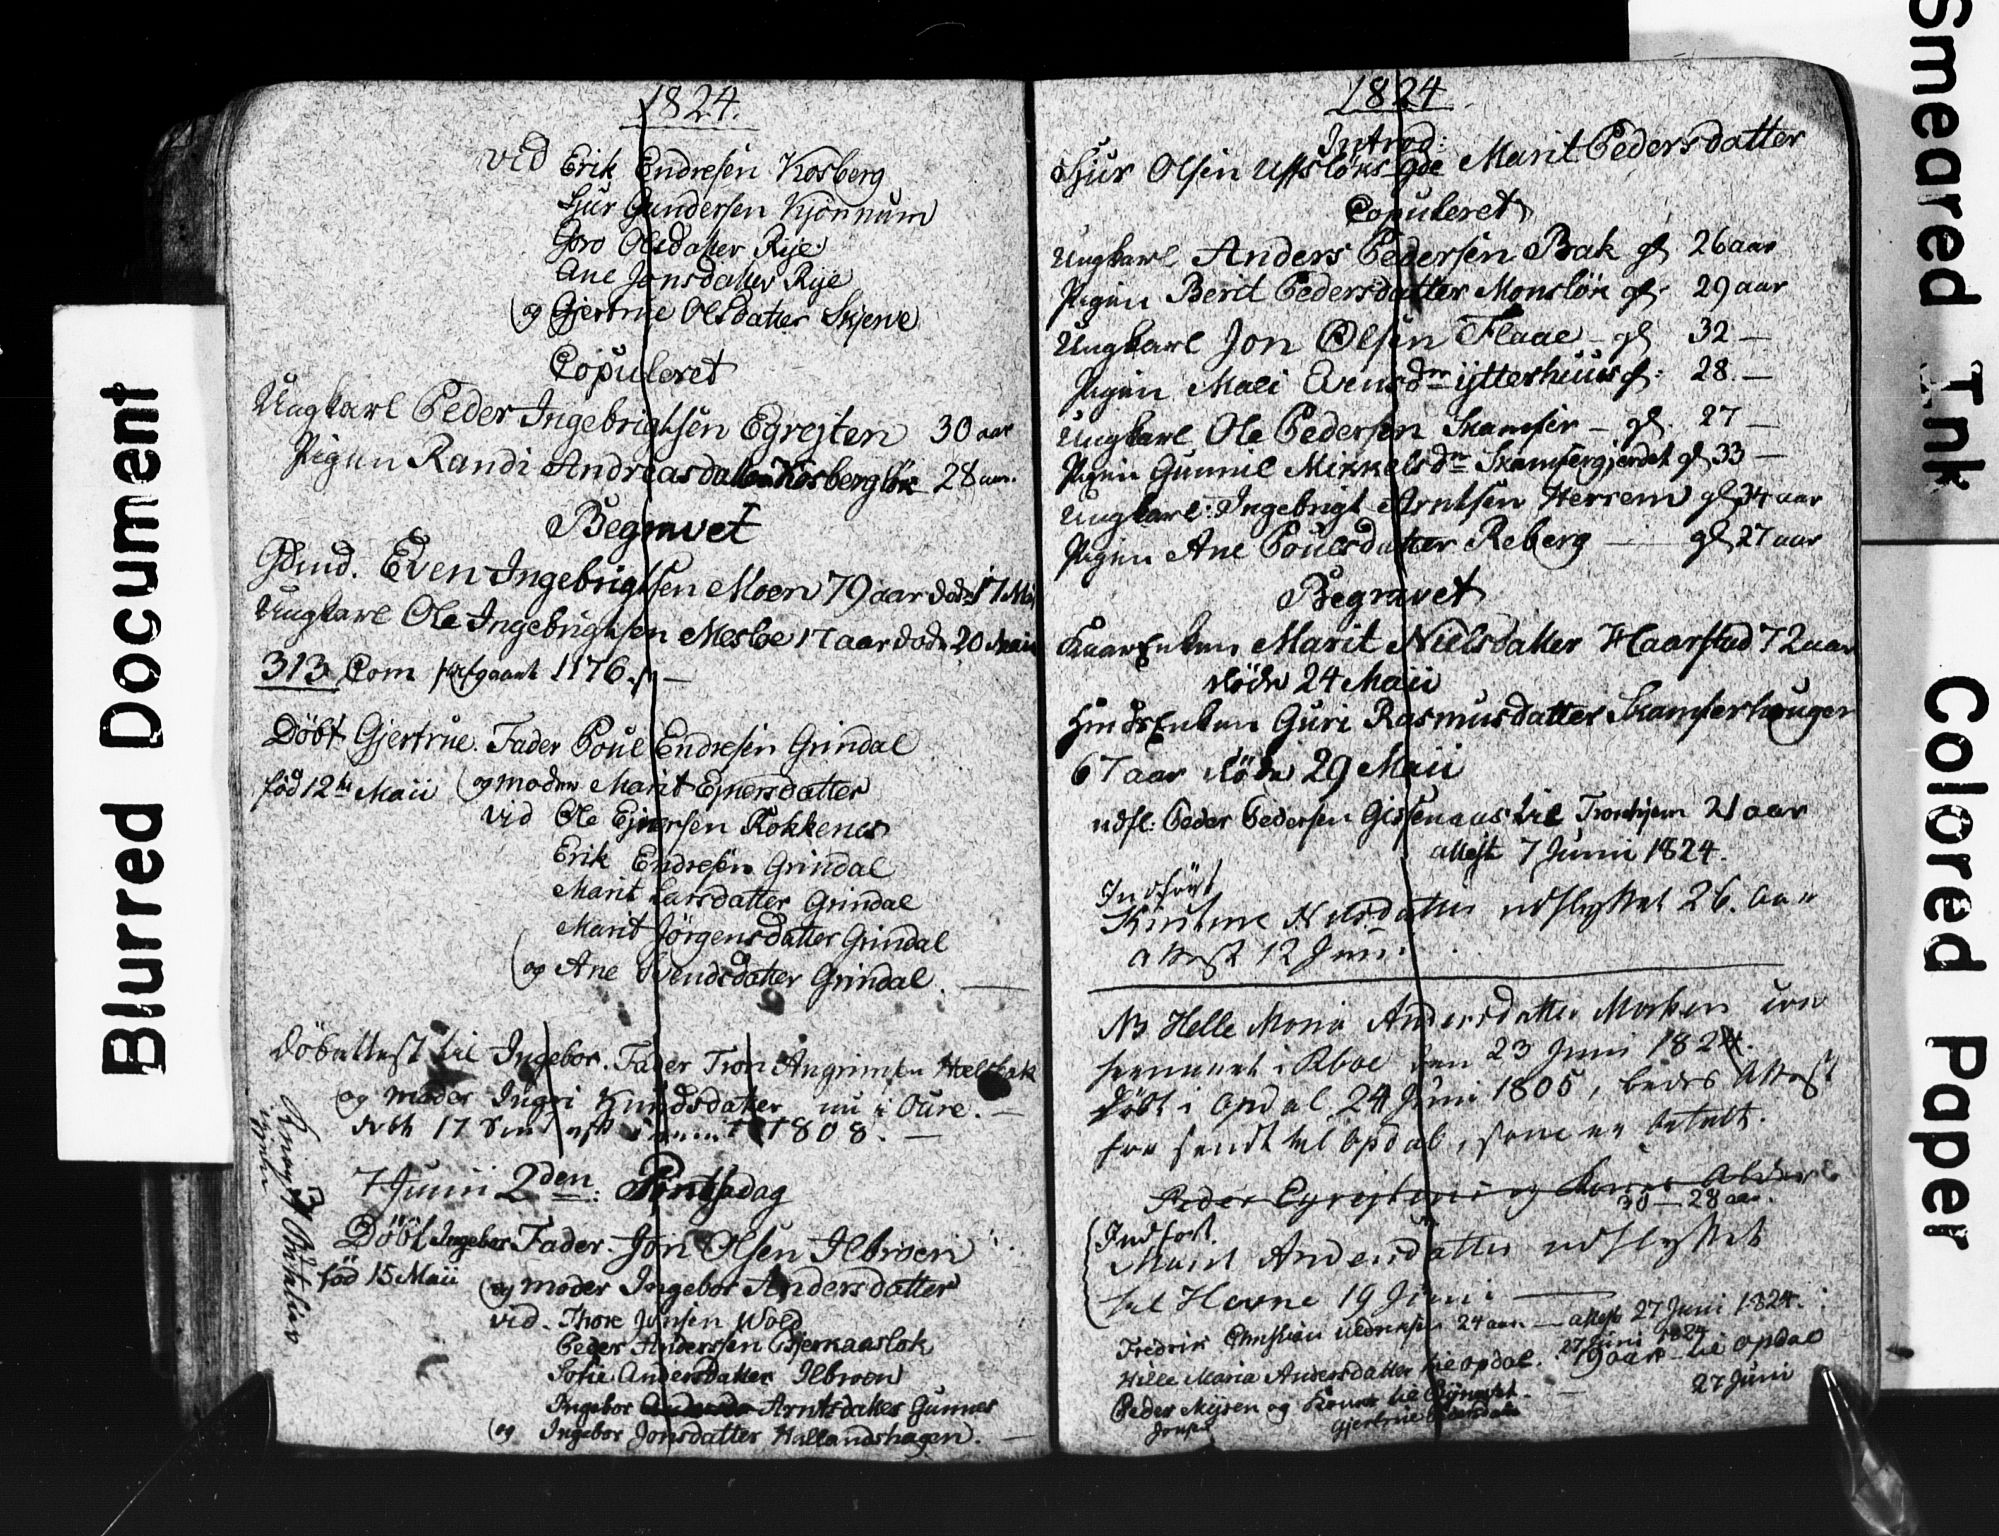 1824.
vid Erik Endresen Kosberg
Sjur Gundersen Kjönnum
Goro Olsdatter Rije
Ane Jonsdatter Rije
og Gjertrue Olsdatter Skjerve
Copuleret
Ungkarl Peder Ingebrigtsen Egrejten 30 aar
Pigen Randi Andreasdatter Kosberglök 28 aar.
Begravet
Gdmd. Even Ingebrigtsen Moen 79 aar döde 17 Mai
Ungkarl Ole Ingebrigtsen Mesloe 17 aar döde 20 Maii
313 Com 1176.
Döbt Gjertrue. Fader Poul Endresen Grindal
föd 12te Maii og moder Marit Ejnersdatter
vid Ole Ejnersen Rokkenes
Erik Endresen Grindal
Marit Larsdatter Grindal
Marit Jörgensdatter Grindal
og Ane Svendsdatter Grindal.
Döbattest til Ingebor. Fader Tron Angrimsen Hælsbak
og moder Ingri Knudsdatter nu i Oure.
döbt 17 1808.
7 Junii 2den Pintsedag
Döbt Ingebor Fader. Jon Olsen Ilbroen
föd 15 Maii og moder Ingebor Andersdatter
vid. Thore Jonsen Wold
Peder Anderssen Gjerkaaslök
Sofie Andersdatter Ilbroen
Ingebor Arntsdatter Gunnes
og Ingebor Jonsdatter Hallandshagen.
1824
Introd:
Sjur Olsen Uffsløks Qde Marit Pedersdatter
Copuleret
Ungkarl Anders Pedersen Bak gl 26 aar
Pigen Berit Pedersdatter Monslök gl. 29 aar
Ungkarl Jon Olsen Flaae gl 32
Pigen Mali Evensdtr ytterhuus gl: 28.
Ungkarl Ole Pedersen Skamfer gl. 27
Pigen Gunnil Mikkelsdtr Skamfergjerdet gl 33
Ungkarl: Ingebrigt Arntsen Herrem gl 34 aar
Pigen Ane Poulsdatter Reberg gl 27 aar
Begravet
KaarEnken Marit Nielsdatter Haarstad 72 aar
döde 24 Maii
Enken Guri Rasmusdatter Skamferhougen
67 aar döde 29 Maii
udfl: Peder Pedersen Gissenaas til Tronhjem 21 aar
attest 7 Junii 1824.
Indfört
Nilsdatter udflyttet 26. aar
attest 12 Juni
NB Helle Maria Andersdatter
i den 23 Juni 1824.
Döbt i Opdal 24 Juni 1805, bedes Attest
sendt til Opdal, som er betalt.
Peder Egrejten og Kones Alder
30 — 28 aar.
Indfört.
Marit Andersdatter udflyttet
til Hevne 19 Juni
Fredrik Christian 24 aar — attest 27 Juni 1824.
Hille Maria Andersdatter til Opdal. 27 Juni 1824
19 aar til Opdal
Peder og Kone til 27 Juni
Jonsen Gjertrue
Blurred Document
Smeared Ink
Colored Paper